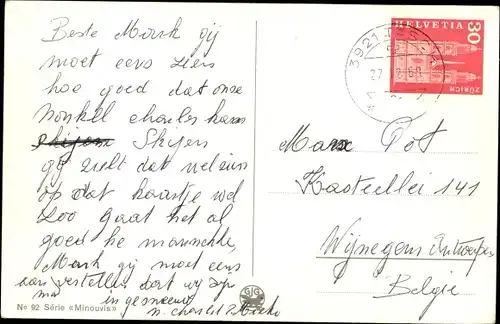 Beste Mark gij
moet eens zien
hoe goed dat onze
nonkel charles kan
Skijen
gij ziet dat wel eens
op dat kaartje wel
Zoo gaat het al
goed he manneke,
Mark gij moet eens
aan vertellen dat wij zijn
in gesneeuwd
N. charles
No 92 Série «Minouvis»
GJG
3921
27
HELVETIA 30
ZÜRICH
Marc Pot
Kasteellei 141
Wijnegem Antwerpen
Belgie